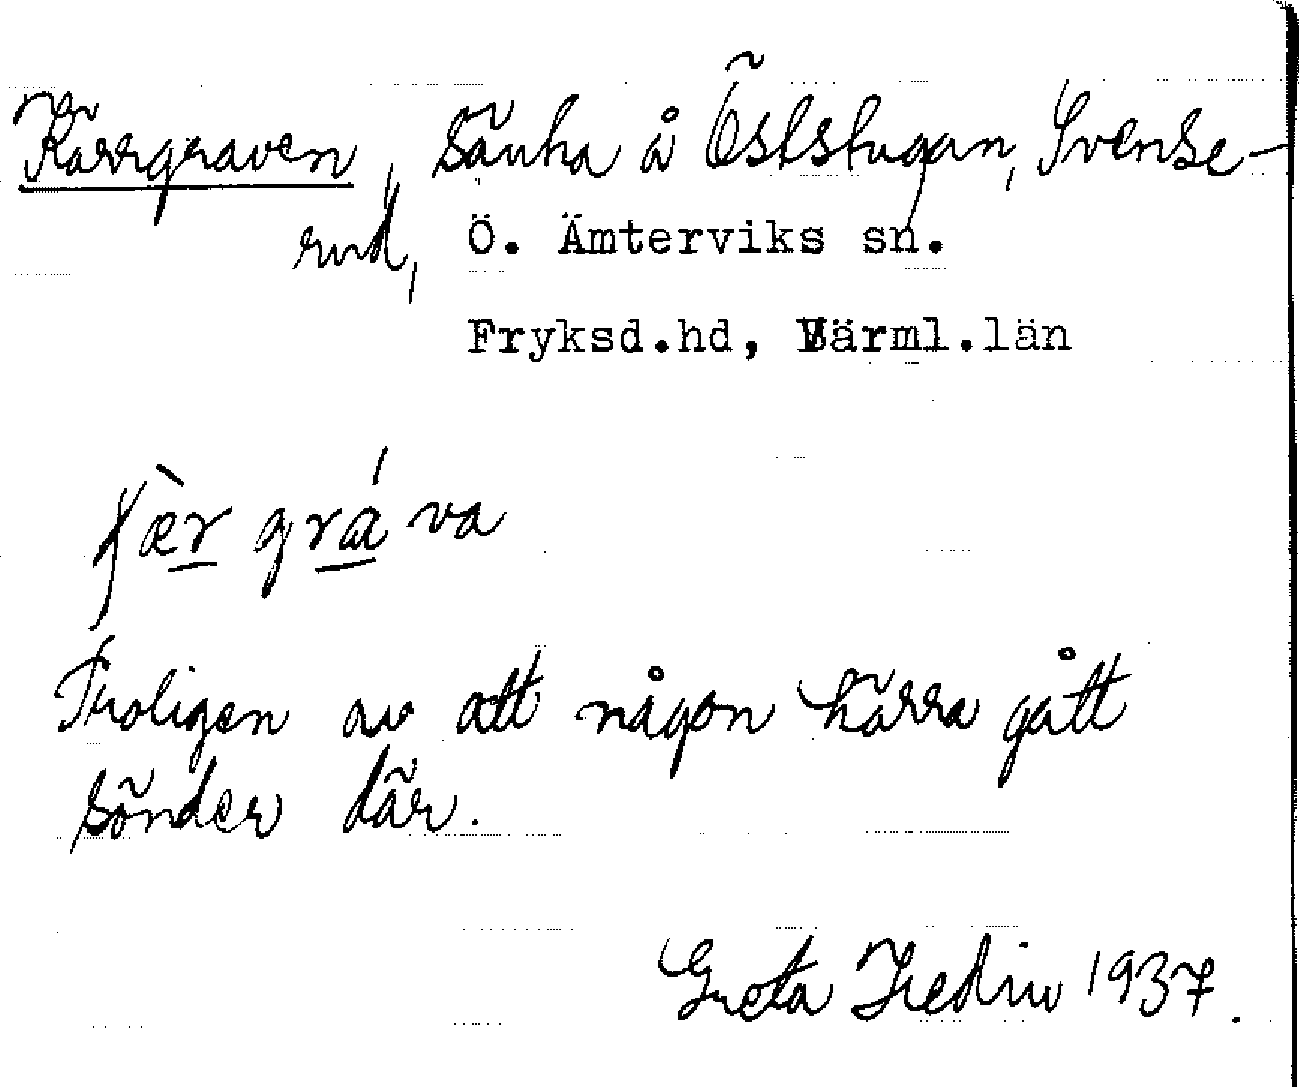 Kärrgraven, sänka å Öststugan, Svense-
rud, Ö. Ämterviks sn.
Fryksd.hd, Värml.län
çær grá va
Troligen av att någon kärra gått
sönder där.
Greta Hedin 1937.